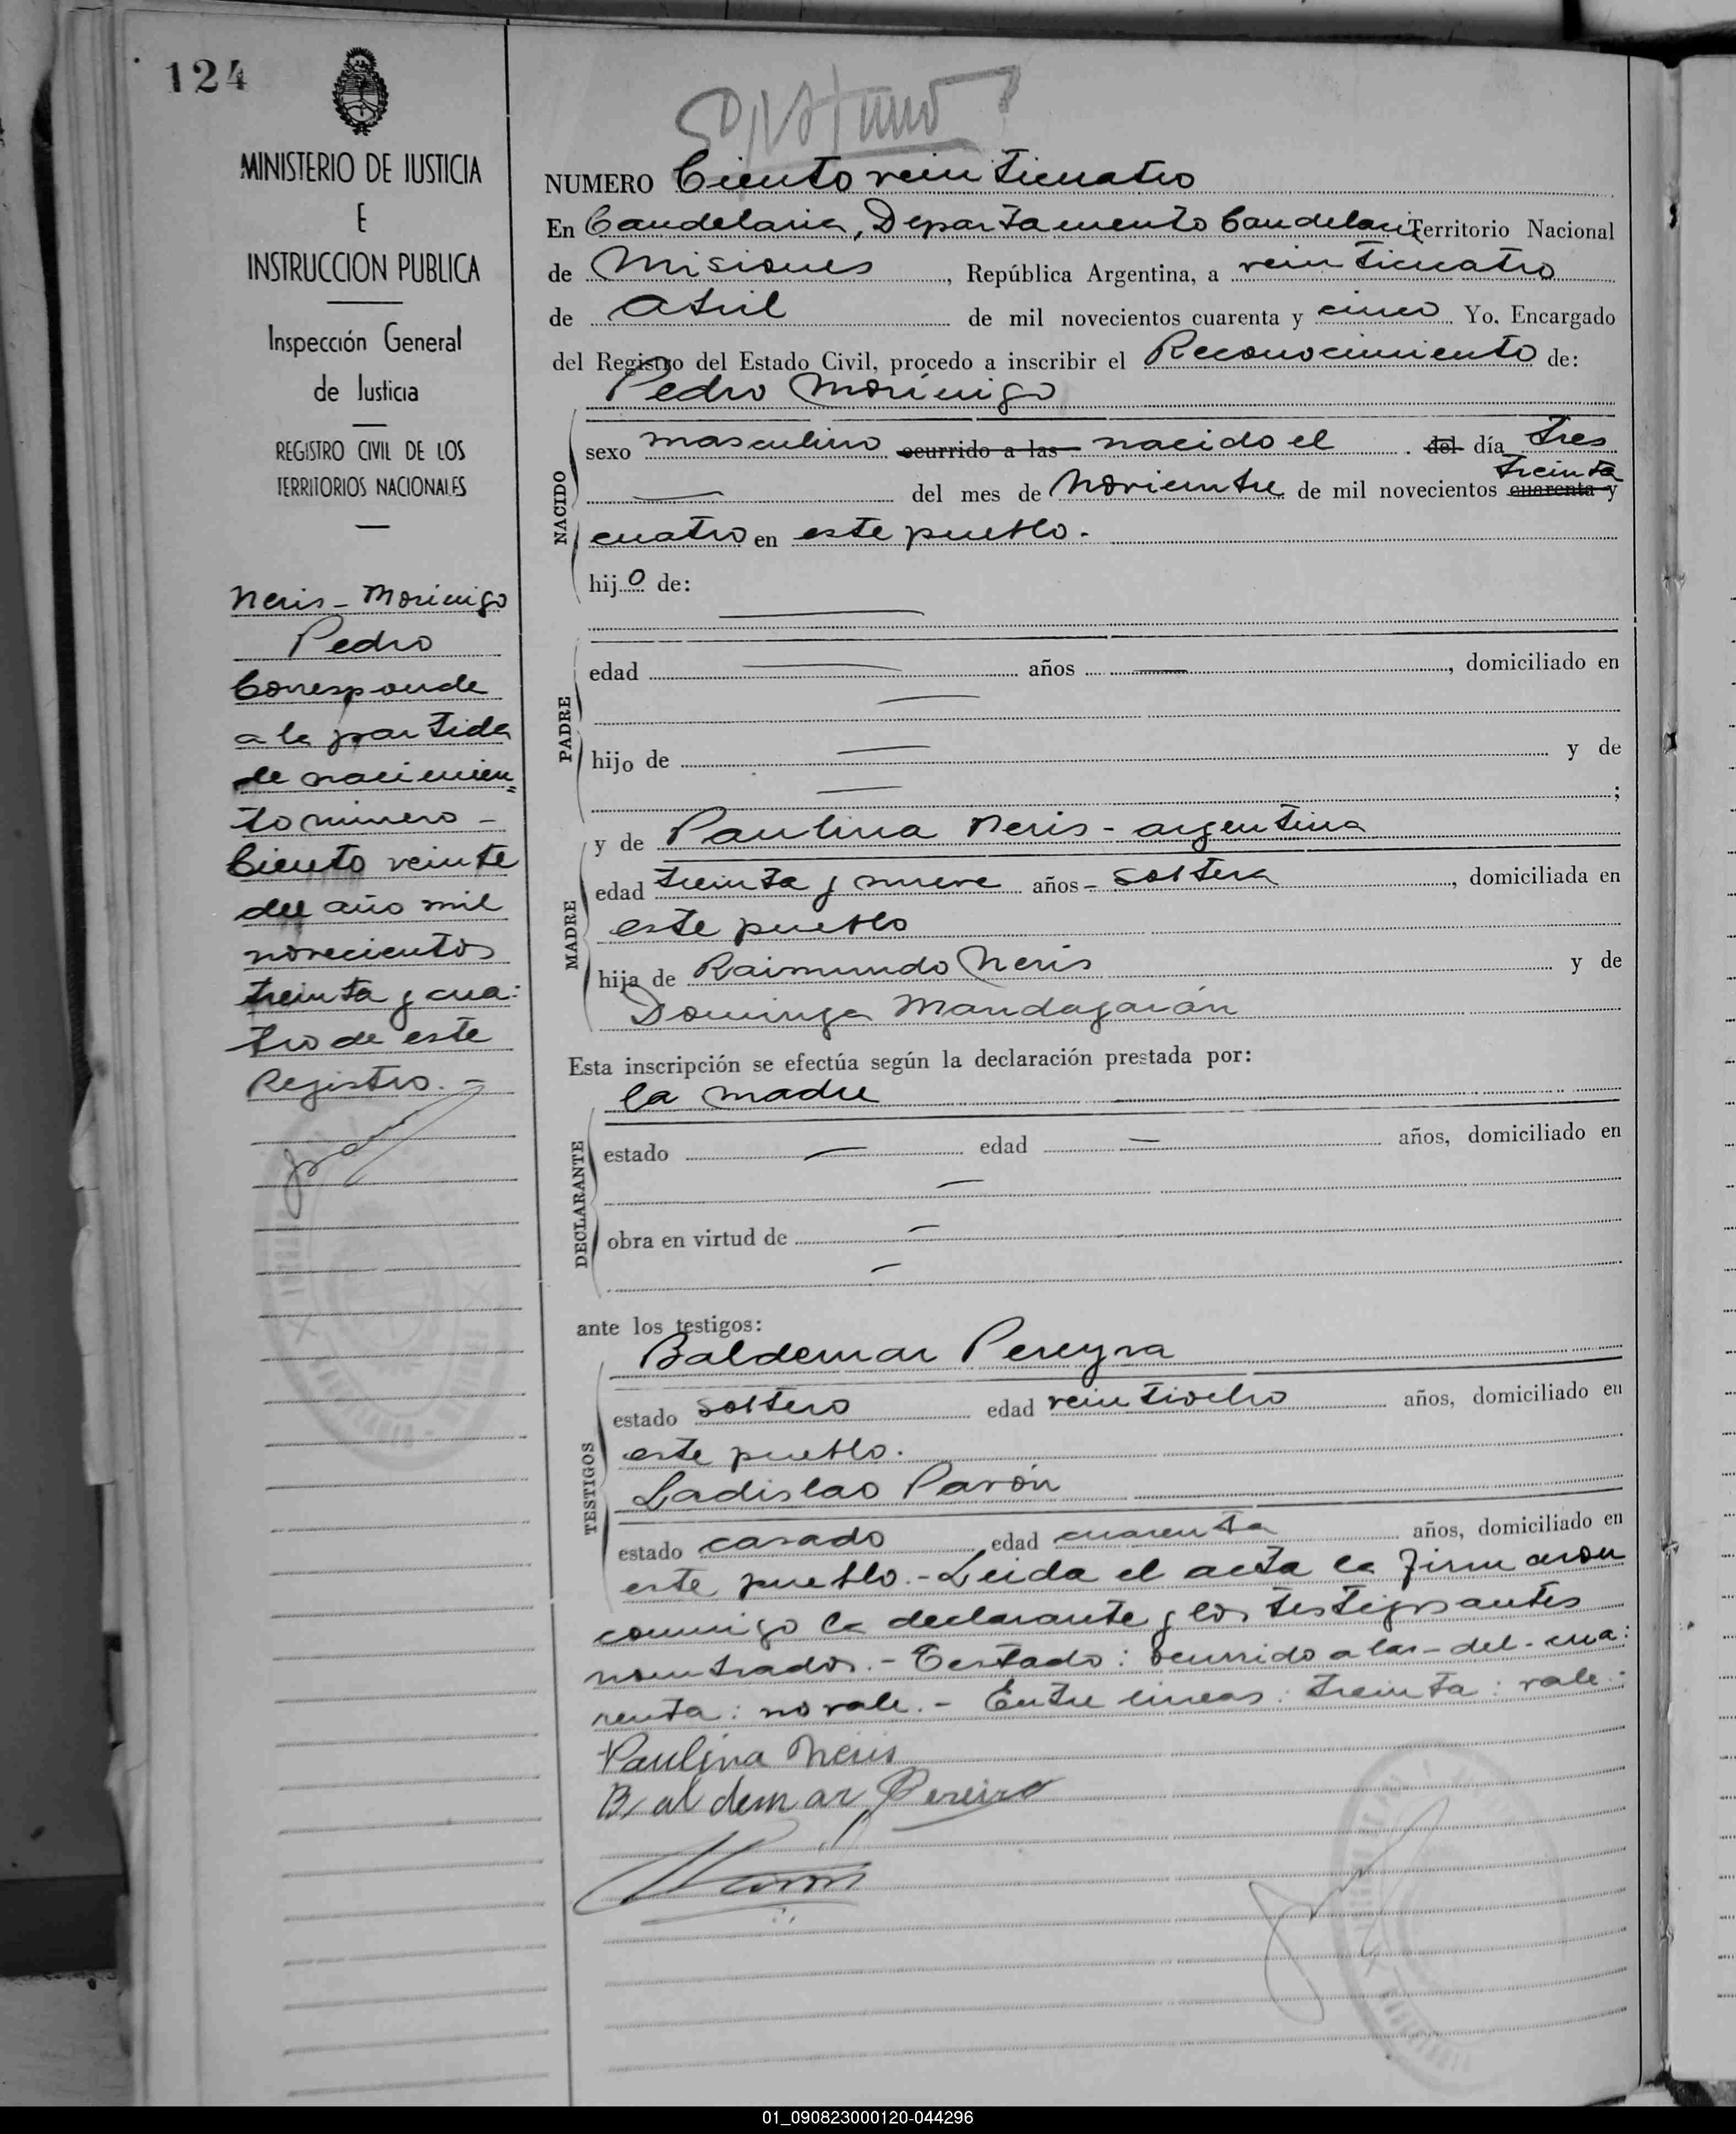 124
MINISTERIO DE JUSTICIA
E
INSTRUCCION PUBLICA
Inspección General
de Justicia
REGISTRO CIVIL DE LOS
TERRITORIOS NACIONALES
Neris - Morínigo
Pedro
Corresponde
a la partida
de nacimien=
to número -
Ciento veinte
del año mil
novecientos
treinta y cua:
tro de este
Registro. -
NUMERO Ciento veinticuatro
En Candelaria, Departamento Candelaria Territorio Nacional
de Misiones, República Argentina, a veinticuatro
de Abril de mil novecientos cuarenta y cinco Yo, Encargado
del Registro del Estado Civil, procedo a inscribir el Reconocimiento de:
Pedro Morínigo
NACIDO
sexo masculino ocurrido a las nacido el . del día tres
treinta
— del mes de Noviembre de mil novecientos cuarenta y
cuatro en este pueblo.
hijo de:
PADRE
edad — años —, domiciliado en
—
hijo de — y de
— ;
MADRE
y de Paulina Neris - argentina
edad treinta y nueve años - soltera, domiciliada en
este pueblo
hija de Raimundo Neris y de
Dominga Mandagarán
Esta inscripción se efectúa según la declaración prestada por:
la madre
DECLARANTE
estado — edad — años, domiciliado en
—
obra en virtud de —
—
ante los testigos:
TESTIGOS
Baldemar Pereyra
estado soltero edad veintiocho años, domiciliado en
este pueblo.
Ladislao Pavón
estado casado edad cuarenta años, domiciliado en
este pueblo. - Leida el acta la firmaron
conmigo la declarante y los testigos antes
nombrados. - Testado: ocurrido a las - del - cua:
renta: no vale. - Entre lineas: treinta: vale:
Paulina Neris
Baldemar Pereira
01_090823000120-044296